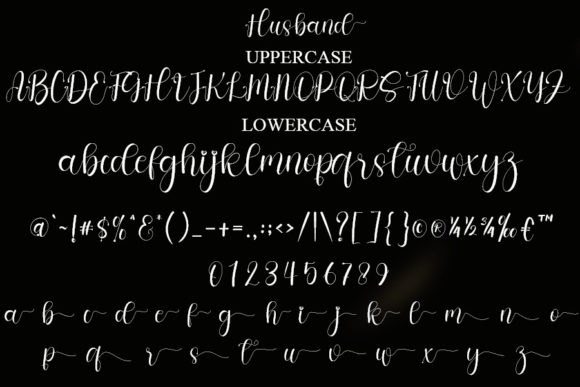 Husband
UPPERCASE
ABCDEFGHIJKLMNOPQRSTUVWXYZ
LOWERCASE
abcdefghijklmnopqrstuvwxyz
@`~!#$%^&*()_-+=.,:;<>/|\?[]{}©®¼½¾‰€™
0123456789
a b c d e f g h i j k l m n o
p q r s t u v w x y z